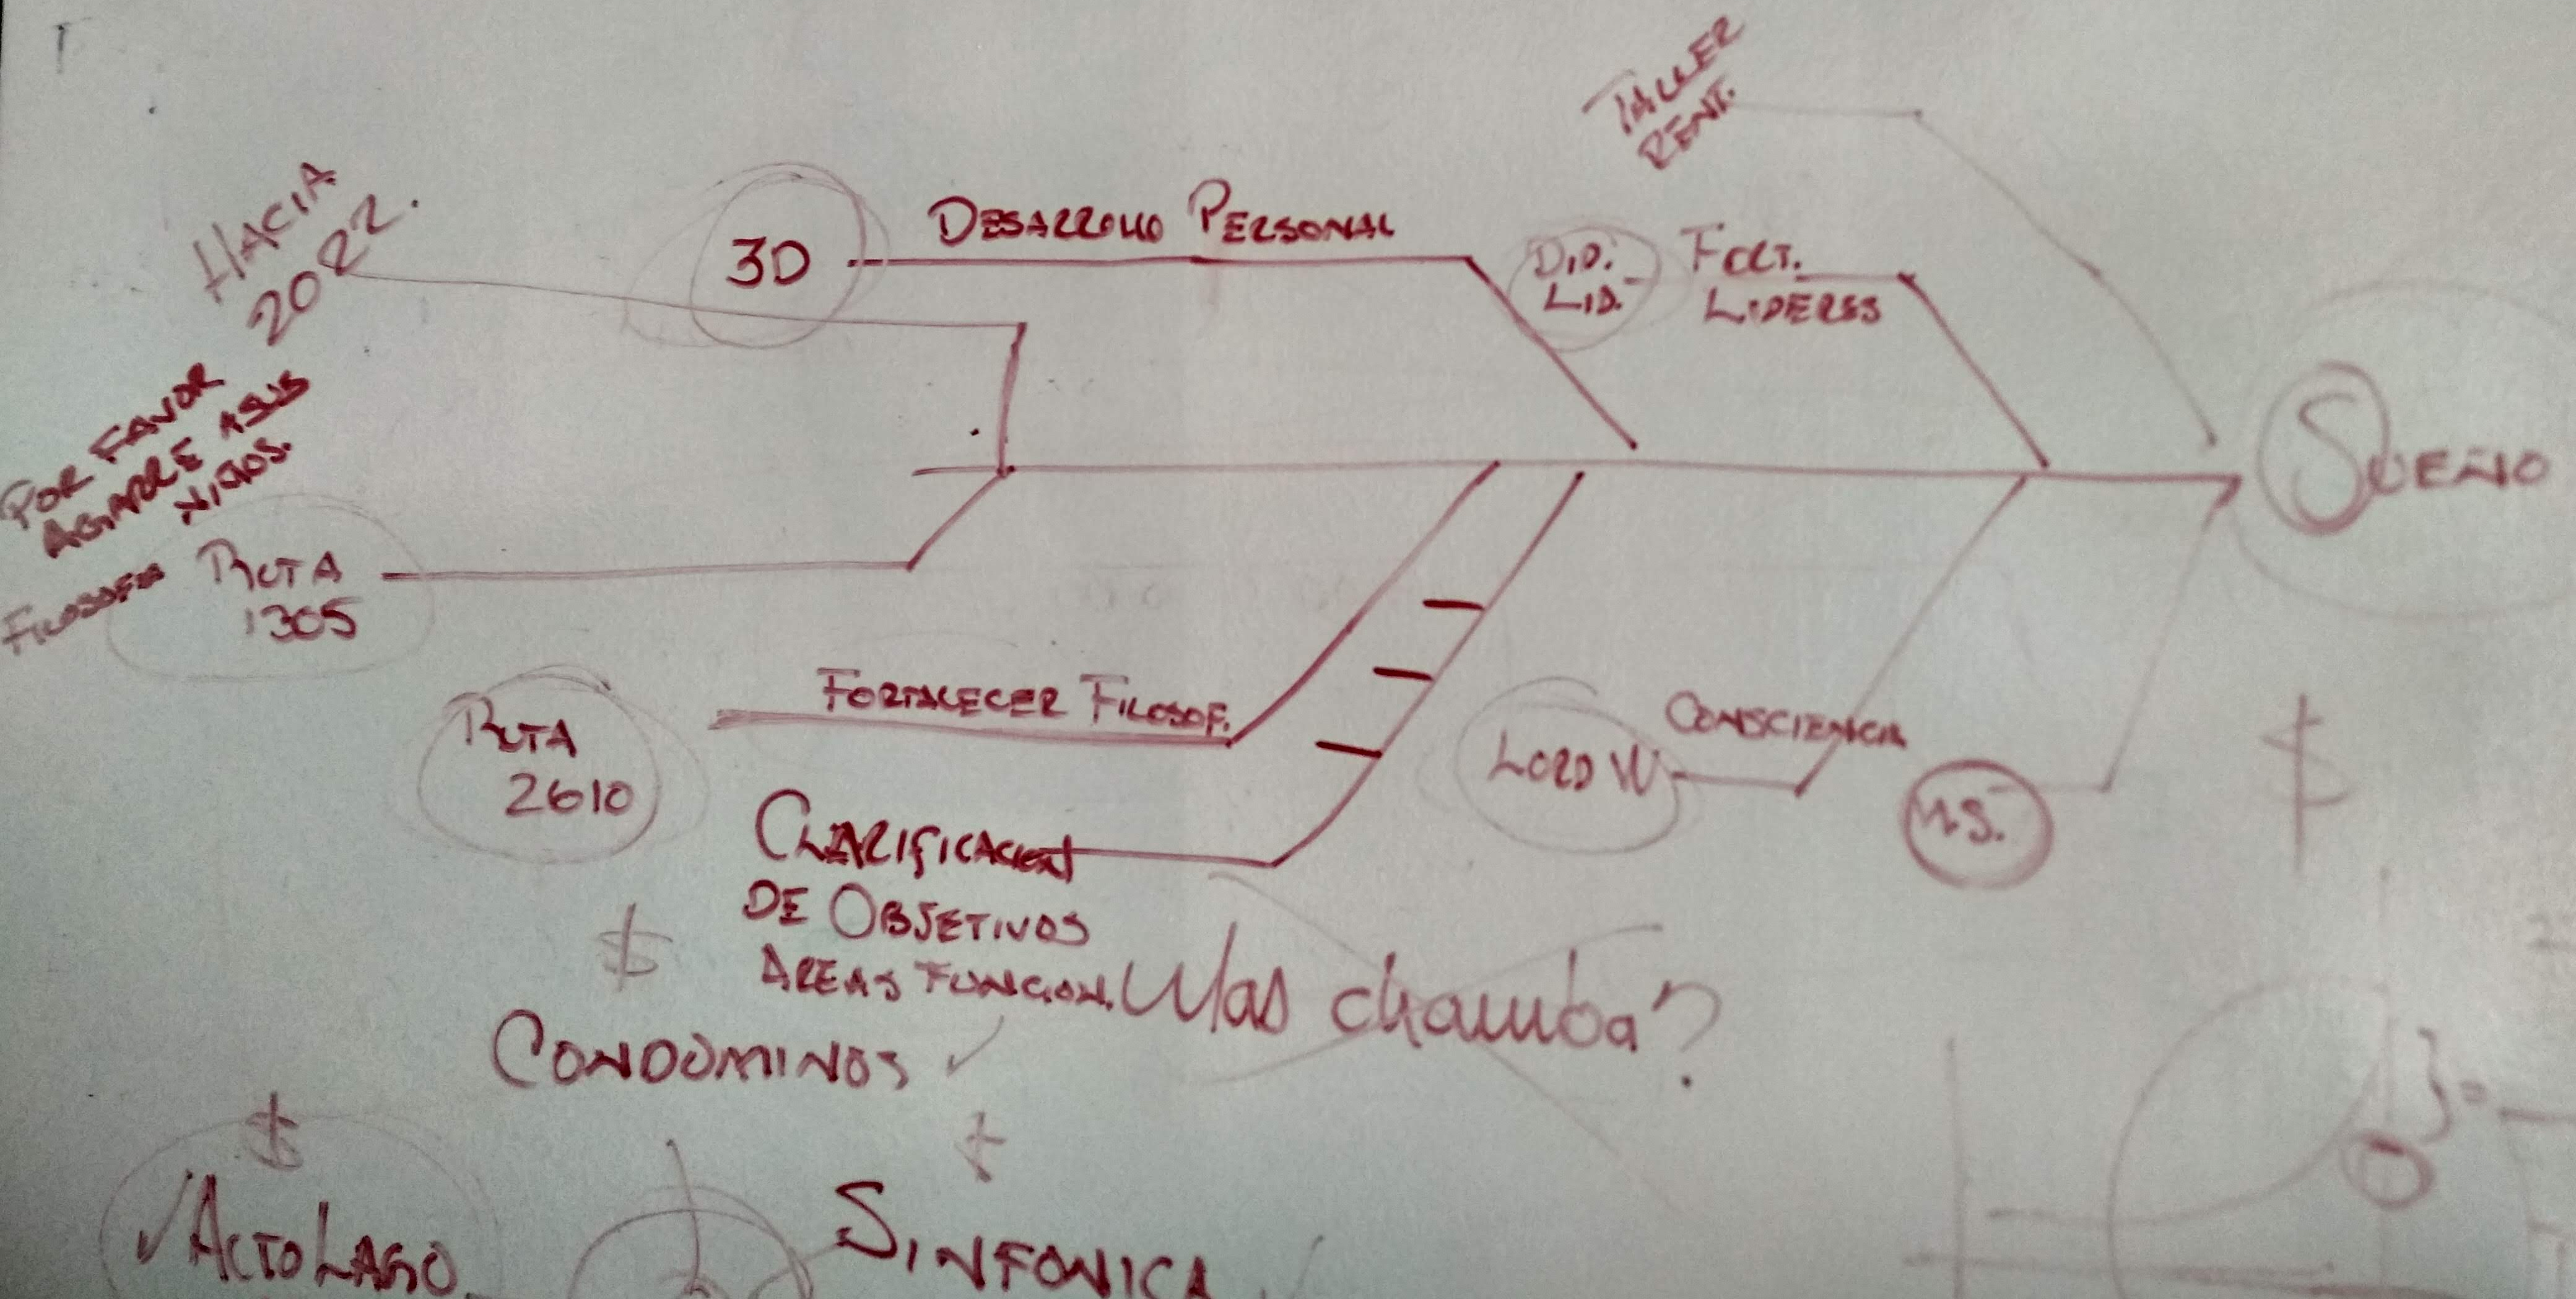 TALLER
RENT.
HACIA
2022.
3D
DESARROLLO PERSONAL
DID.
LID.
FORT.
LIDERES
POR FAVOR
AGARRE A SUS
NIÑOS.
SUEÑO
FILOSOFIA
RUTA
1305
FORTALECER FILOSOF.
RUTA
2610
CONSCIENCIA
LORD W
N.S.
$
CLARIFICACION
DE OBJETIVOS
AREAS FUNCION.
$
Mas chamba?
CONDOMINOS ✓
$
✓ ALTO LAGO
SINFONICA ✓